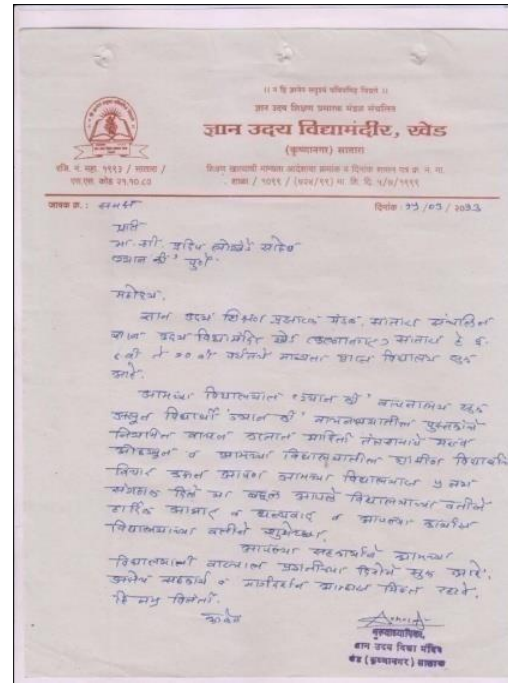 ।। न हि ज्ञानेन सदृशं पवित्रमिह विद्यते ।।
ज्ञान उदय शिक्षण प्रसारक मंडळ संचालित
ज्ञान उदय विद्यामंदीर, खेड
(कृष्णानगर) सातारा
रजि. नं. महा. १९९३ / सातारा /
एस.एस. कोड २१.१०.८३
शिक्षण खात्याची मान्यता आदेशाचा क्रमांक व दिनांक शासन पत्र क्र. न. मा.
शाळा / १०९९ / (१२४/९९) मा. शि. दि. ५/७/१९९९
जावक क्र. : समक्ष
दिनांक :
प्रति
मा. श्री. प्रदिप लोखंडे साहेब
पुणे.
महोदय,
ज्ञान उदय शिक्षण प्रसारक मंडळ, सातारा संचलित
ज्ञान उदय विद्यामंदिर खेड (कृष्णानगर) सातारा हे इ.
वी ते १० वी पर्यंतचे मान्यता प्राप्त विद्यालय सुरु
आहे.
आमच्या विद्यालयात 'ग्यान की' वाचनालय सुरु
असून विद्यार्थी 'ग्यान की' वाचनालयातील पुस्तकांचे
नियमित वाचन करतात
व आमच्या विद्यालयातील ग्रामीण विद्यार्थी
विचार करून आपण आमच्या विद्यालयास
दिले या बद्दल आपले विद्यालयाच्या वतीने
हार्दिक आभार व धन्यवाद व आपल्या कार्यास
विद्यालयाच्या वतीने शुभेच्छा.
आपल्या सहकार्याने आमच्या
विद्यालयाची वाटचाल प्रगतीच्या दिशेने सुरु आहे.
असेच सहकार्य व मार्गदर्शन आम्हास मिळत रहावे.
हि नम्र विनंती.
मुख्याध्यापिका,
ज्ञान उदय विद्या मंदिर
खेड (कृष्णानगर) सातारा